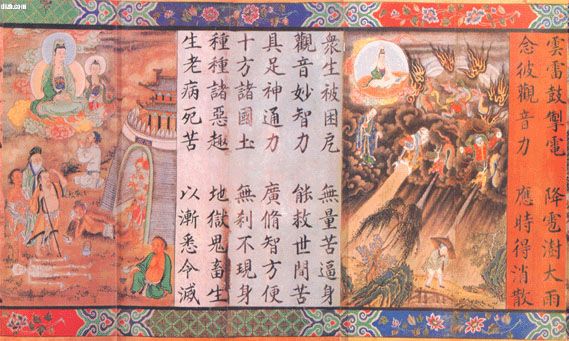 雲雷鼓掣電 降雹澍大雨
念彼觀音力 應時得消散
衆生被困厄 無量苦逼身
觀音妙智力 能救世間苦
具足神通力 廣脩智方便
十方諸國土 無刹不現身
種種諸惡趣 地獄鬼畜生
生老病死苦 以漸悉令滅